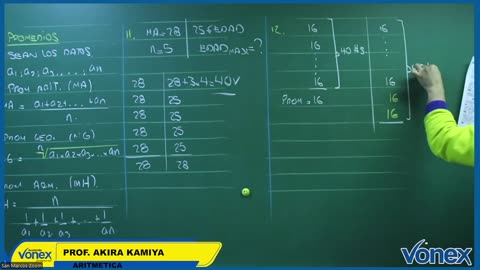 PROMEDIOS
SEAN LOS DATOS
a₁, a₂, a₃, ..., an
PROM ARIT. (MA)
MA = a₁+a₂+...+an
n.
PROM GEO. (MG)
G = ⁿ√a₁.a₂.a₃...an
PROM ARM. (MH)
H = n
1/a₁ + 1/a₂ + 1/a₃ + ... + 1/an
11.
MA=28
n=5
25≤EDAD
EDAD MAX=?
28 28+3.4=40✓
28 25
28 25
28 25
28 25
28 28
12.
16 16
16 :
: :
: :
16 16
40 #s.
PROM=16 16
16
vonex
PROF. AKIRA KAMIYA
ARITMÉTICA
San Marcos Zoom
vonex